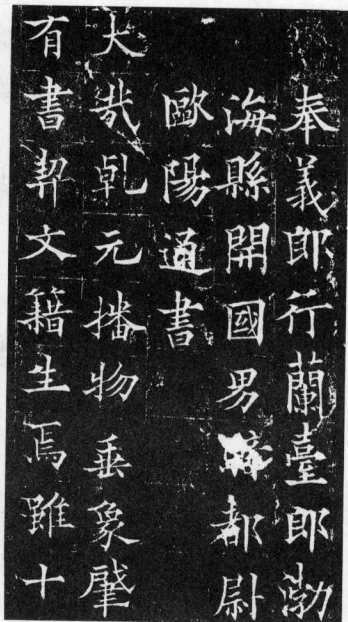 奉義郎行蘭臺郎渤
海縣開國男都尉
歐陽通書
大哉乹元播物垂象肇
有書契文籍生焉雖十